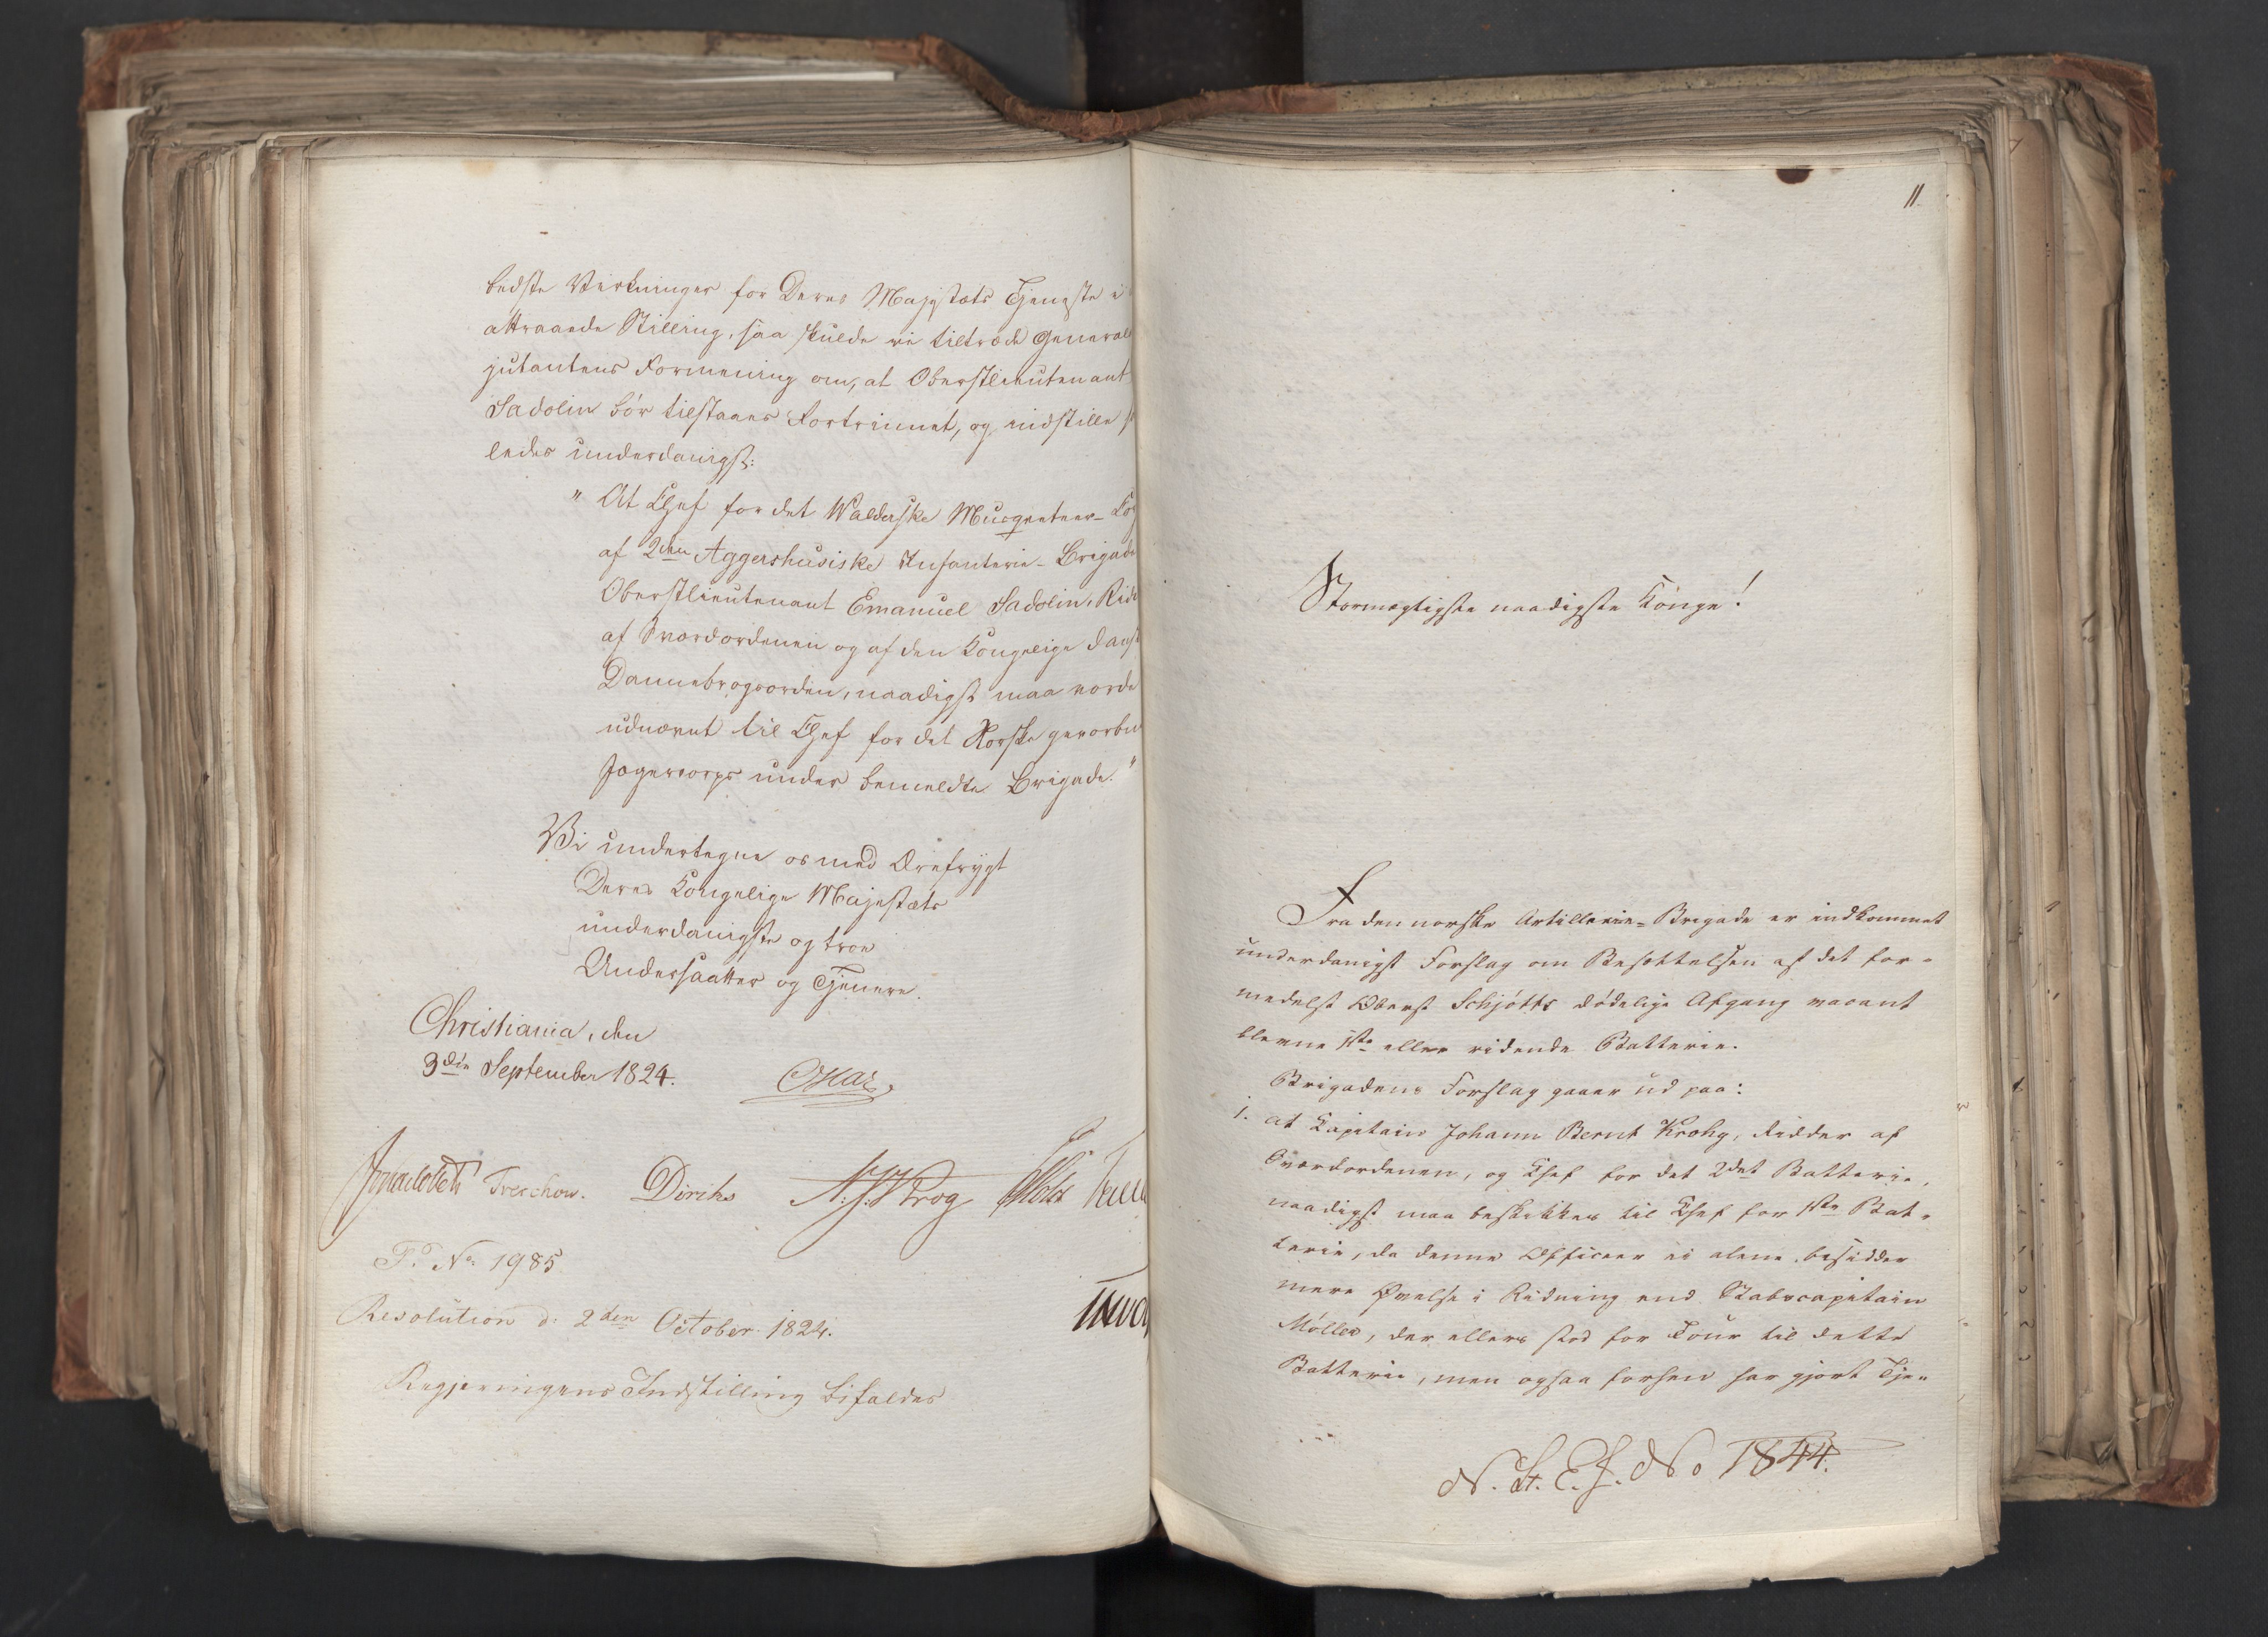 bedste Virkninger for Deres Majestæts Tjeneste i
attraaede Stilling, saa skulde vi tiltræde General
jutantens Formening om, at Oberstlieutenant
Sadolin bør tilstaaes Fortrinnet, og indstille s
ledes underdanigst:
" At Chef for det Walderske Musqueteer-Co
af 2den Aggershusiske Infanterie-Brigade
Oberstlieutenant Emanuel Sadolin, Ridd
af Sværdordenen og af den Kongelige dansk
Dannebrogsorden, naadigst maa vorde
udnævnt til Chef for det Norske gevorbn
Jægercorps under bemeldte Brigade."
Vi undertegne os med Ærefrygt
Deres Kongelige Majestæts
underdanigste og troe
Undersaatter og Tjenere.
Christiania, den
3die September 1824.
Oscar
Treschow. Diriks N. J. Krog Holst
F. No: 1985
Resolution d: 2den October 1824.
Regjeringens Indstilling bifaldes
11.
Stormægtigste naadigste Konge!
Fra den norske Artillerie-Brigade er indkommet
underdanigst Forslag om Besættelsen af det for-
medelst Oberst Schjøtts dødelige Afgang vacant
blevne 1ste eller ridende Batterie.
Brigadens Forslag gaaer ud paa:
1. at Capitain Johann Bernt Krohg, Ridder af
Sværdordenen, og Chef for det 2det Batterie,
naadigst maa beskikkes til Chef for 1ste Bat-
terie, da denne Officeer ei alene besidder
mere Øvelse i Ridning end Stabscapitain
Møller, der ellers stod for Tour til dette
Batterie, men ogsaa forhen har gjort Tje-
N. St. E. J. No 1844.